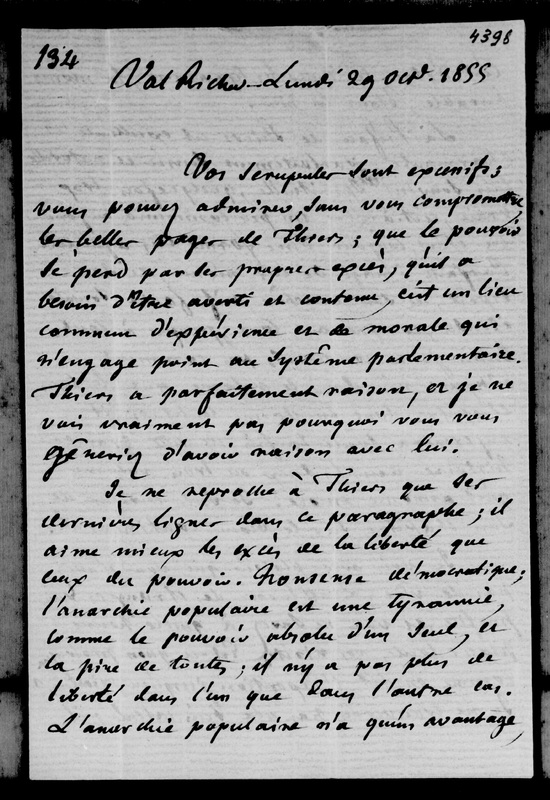 4398
134
Val Richer - Lundi 29 Oct. 1855
Vos scrupules sont excessifs ;
vous pouvez admirer, sans vous compromettre,
les belles pages de Thiers ; que le pouvoir
se perd par ses propres excès, qu'il a
besoin d'être averti et contenu, c'est un lieu
commun d'expérience et de morale qui
n'engage point au système parlementaire.
Thiers a parfaitement raison, et je ne
vois vraiment pas pourquoi vous vous
gêneriez d'avoir raison avec lui.
Je ne reproche à Thiers que ses
dernières lignes dans ce paragraphe ; il
aime mieux les excès de la liberté que
ceux du pouvoir. Nonsense démocratique ;
l'anarchie populaire est une tyrannie,
comme le pouvoir absolu d'un seul, et
la pire de toutes ; il n'y a pas plus de
liberté dans l'un que dans l'autre cas.
L'anarchie populaire n'a qu'un avantage,